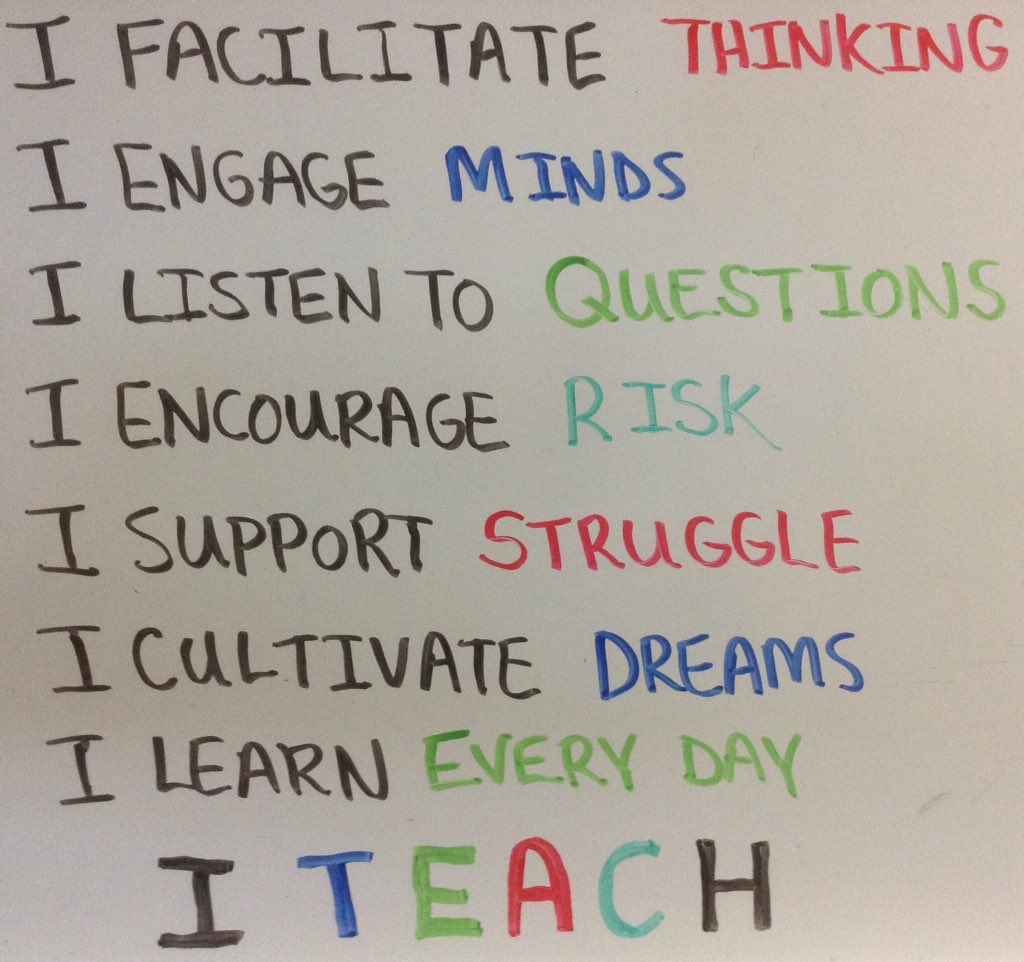 I FACILITATE THINKING
I ENGAGE MINDS
I LISTEN TO QUESTIONS
I ENCOURAGE RISK
I SUPPORT STRUGGLE
I CULTIVATE DREAMS
I LEARN EVERY DAY
I TEACH